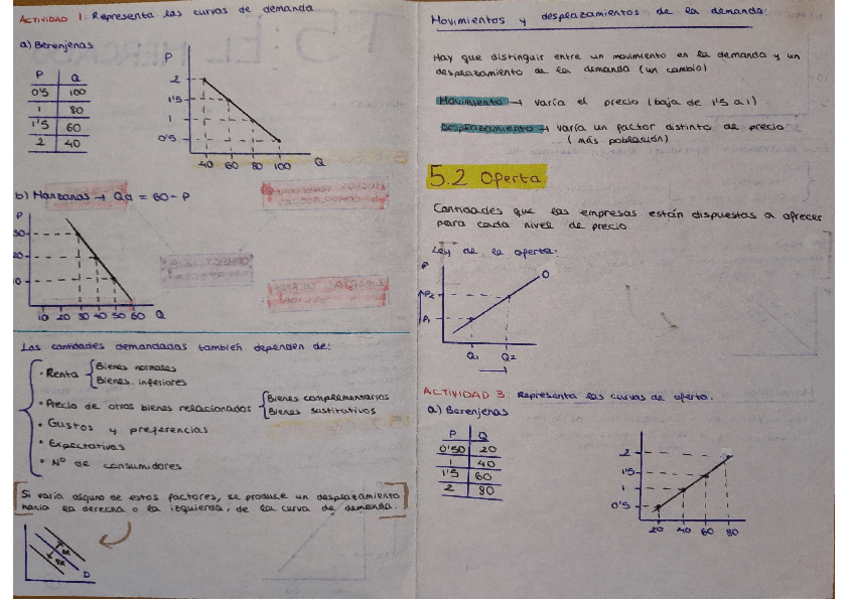 ACTIVIDAD 1: Representa las curvas de demanda
a) Berenjenas
P Q
0'5 100
1 80
1'5 60
2 40
P
2
1'5
1
0'5
40 60 80 100 Q
b) Manzanas → Qd = 60 - P
P
30
20
10
10 20 30 40 50 60 Q
Las cantidades demandadas también dependen de:
· Renta { Bienes normales
Bienes inferiores
· Precio de otros bienes relacionados { Bienes complementarios
Bienes sustitutivos
· Gustos y preferencias
· Expectativas
· Nº de consumidores
Si varía alguno de estos factores, se produce un desplazamiento
hacia la derecha o la izquierda, de la curva de demanda.
D
Movimientos y desplazamientos de la demanda:
Hay que distinguir entre un movimiento en la demanda y un
desplazamiento de la demanda (un cambio)
Movimiento → varía el precio (baja de 1'5 a 1)
Desplazamiento → varía un factor distinto de precio
(más población)
5.2 Oferta
Cantidades que las empresas están dispuestas a ofrecer
para cada nivel de precio
Ley de la oferta:
P
O
P2
P1
Q1 Q2
ACTIVIDAD 3: Representa las curvas de oferta.
a) Berenjenas
P Q
0'50 20
1 40
1'5 60
2 80
2
1'5
1
0'5
20 40 60 80